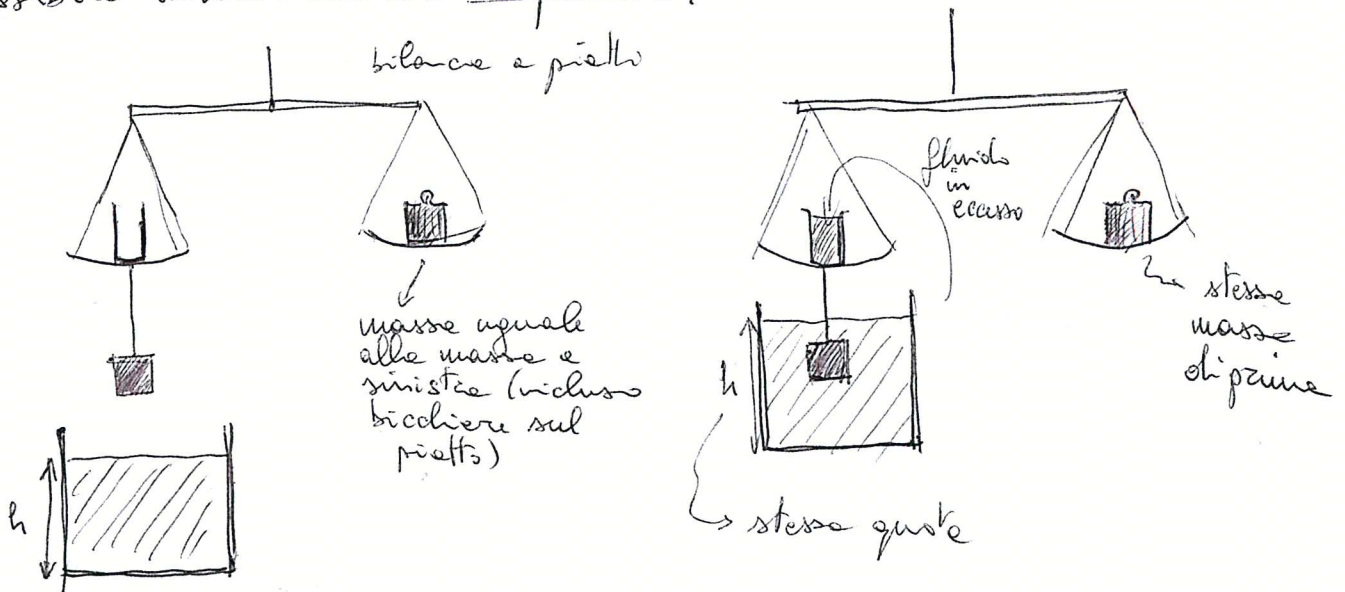 bilancia a piatti
massa uguale
alla massa a
sinistra (incluso
bicchiere sul
piatto)
h
fluido
in
eccesso
stessa
massa
di prima
h
stessa quota